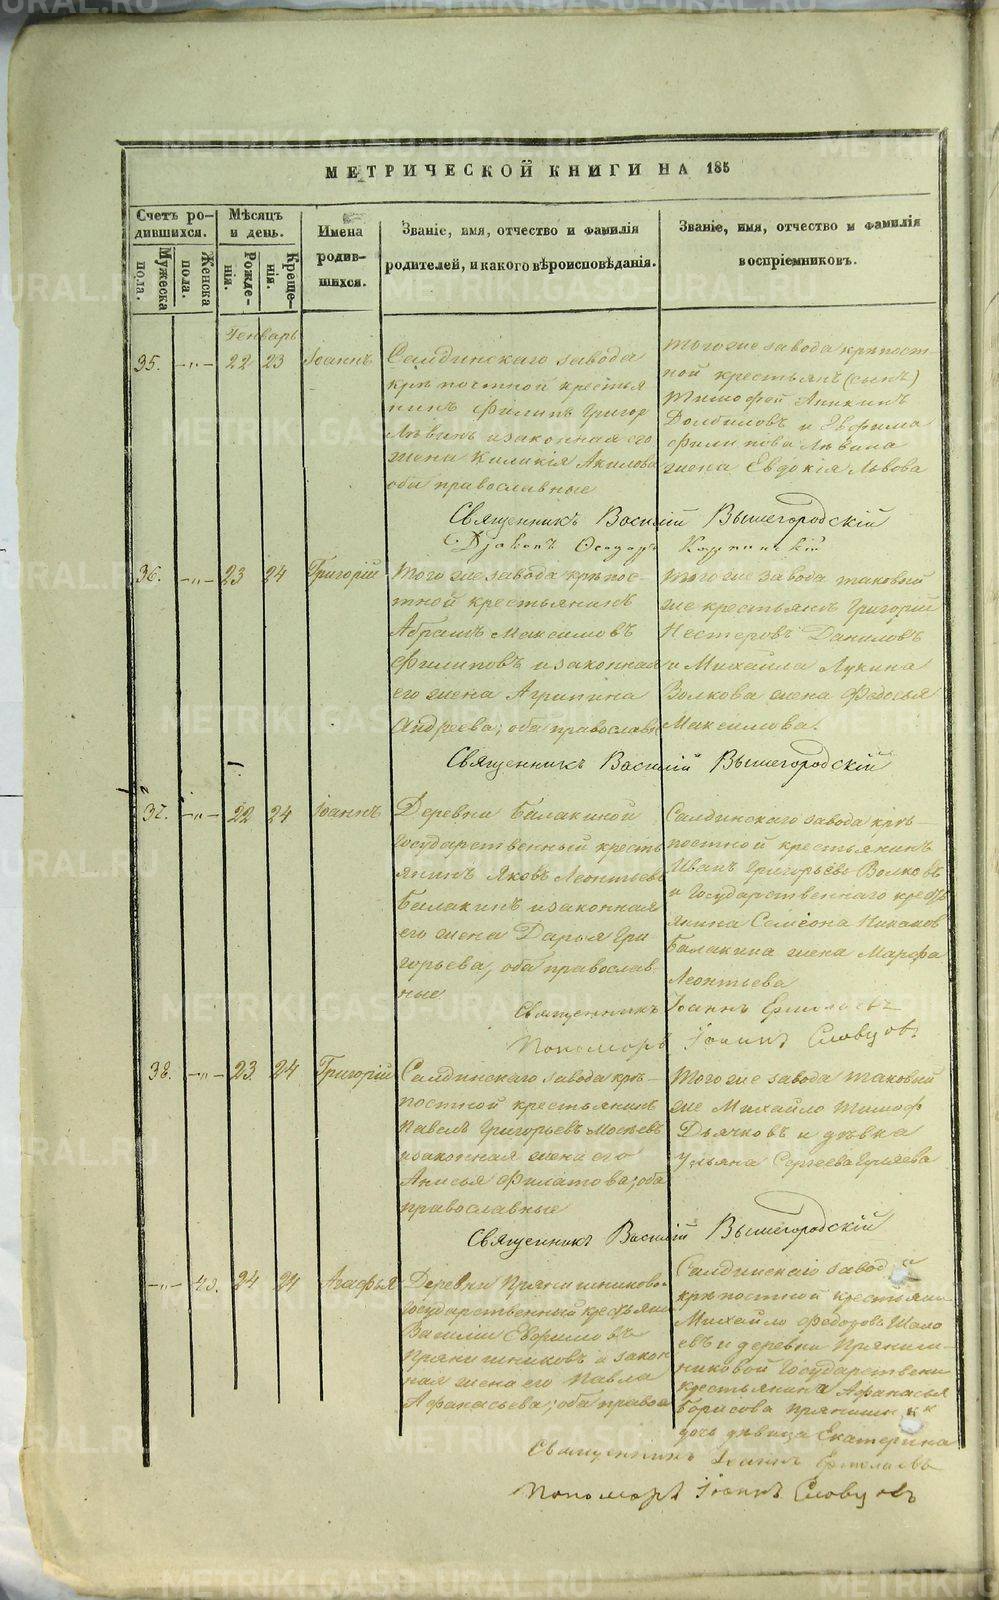 МЕТРИЧЕСКОЙ КНИГИ НА 185
Счетъ ро-
дившихся.
Мѣсяцъ
и день.
Имена
родив-
шихся.
Званіе, имя, отчество и фамилія
родителей, и какого вѣроисповѣданія.
Званіе, имя, отчество и фамилія
воспріемниковъ.
Мужеска
пола.
Женска
пола.
Рожде-
нія.
Креще-
нія.
Генварь
35. -„- 22 23 Іоаннъ
Салдинскаго завода
крѣпостной крестья
нинъ Филипъ Григор
Львинъ и законная его
жена Киликія Акилова
оба православные
Тогоже завода крѣпост-
ной крестьянъ (сынъ)
Тимофей Аникинъ
Долбиловъ и Ефима
Филипова Львина
жена Евдокія Львова
Священникъ Василій Вышегородскій
Діаконъ Феодоръ
36. -„- 23 24 Григорій
Тогоже завода крѣпос-
тной крестьянинъ
Абрамъ Максимовъ
Филиповъ и законная
его жена Агрипина
Андреева; оба православн
Тогоже завода таковый
же крестьянъ Григорій
Нестеровъ Даниловъ
и Михайла Лукина
Волкова жена Федосья
Максимова.
Священникъ Василій Вышегородскій
37. -„- 22 24 Іоаннъ
Деревни Балакиной
государственный кресть
янинъ Яковъ Леонтьевъ
Балакинъ и законная
его жена Дарья Гри
горьева, оба православ
ные
Салдинскаго завода крѣ-
постной крестьянинъ
Иванъ Григорьевъ Волковъ
и Государственнаго крест
янина Семена
Балакина жена Марфа
Леонтьева
Священникъ Іоаннъ Ермолаевъ
Пономарь Іоаннъ Словцовъ
38. -„- 23 24 Григорій
Салдинскаго завода крѣ-
постной крестьянинъ
Павелъ Григорьевъ
и законная жена его
Анисья Филатова; оба
православные
Тогоже завода таковый
же Михайло Тимоф
Дьячковъ и дѣвка
Ульяна Сергеева Гуляева
Священникъ Василій Вышегородскій
-„- 43. 24 24 Агафья
Деревни Пряничниково
государственный крестьяни
Василій Ефимовъ
Пряничниковъ и закон
ная жена его Павла
Афанасьева; оба правос
Салдинскаго завод
крѣпостной крестьяни
Михайло Федоровъ
евъ и деревни Прянич-
никовой Государствени
крестьянина Афанасья
Борисова Пряничн
дочь дѣвица Екатерина
Священникъ Іоаннъ Ермолаевъ
Пономарь Іоаннъ Словцовъ
METRIKI.GASO-URAL.RU